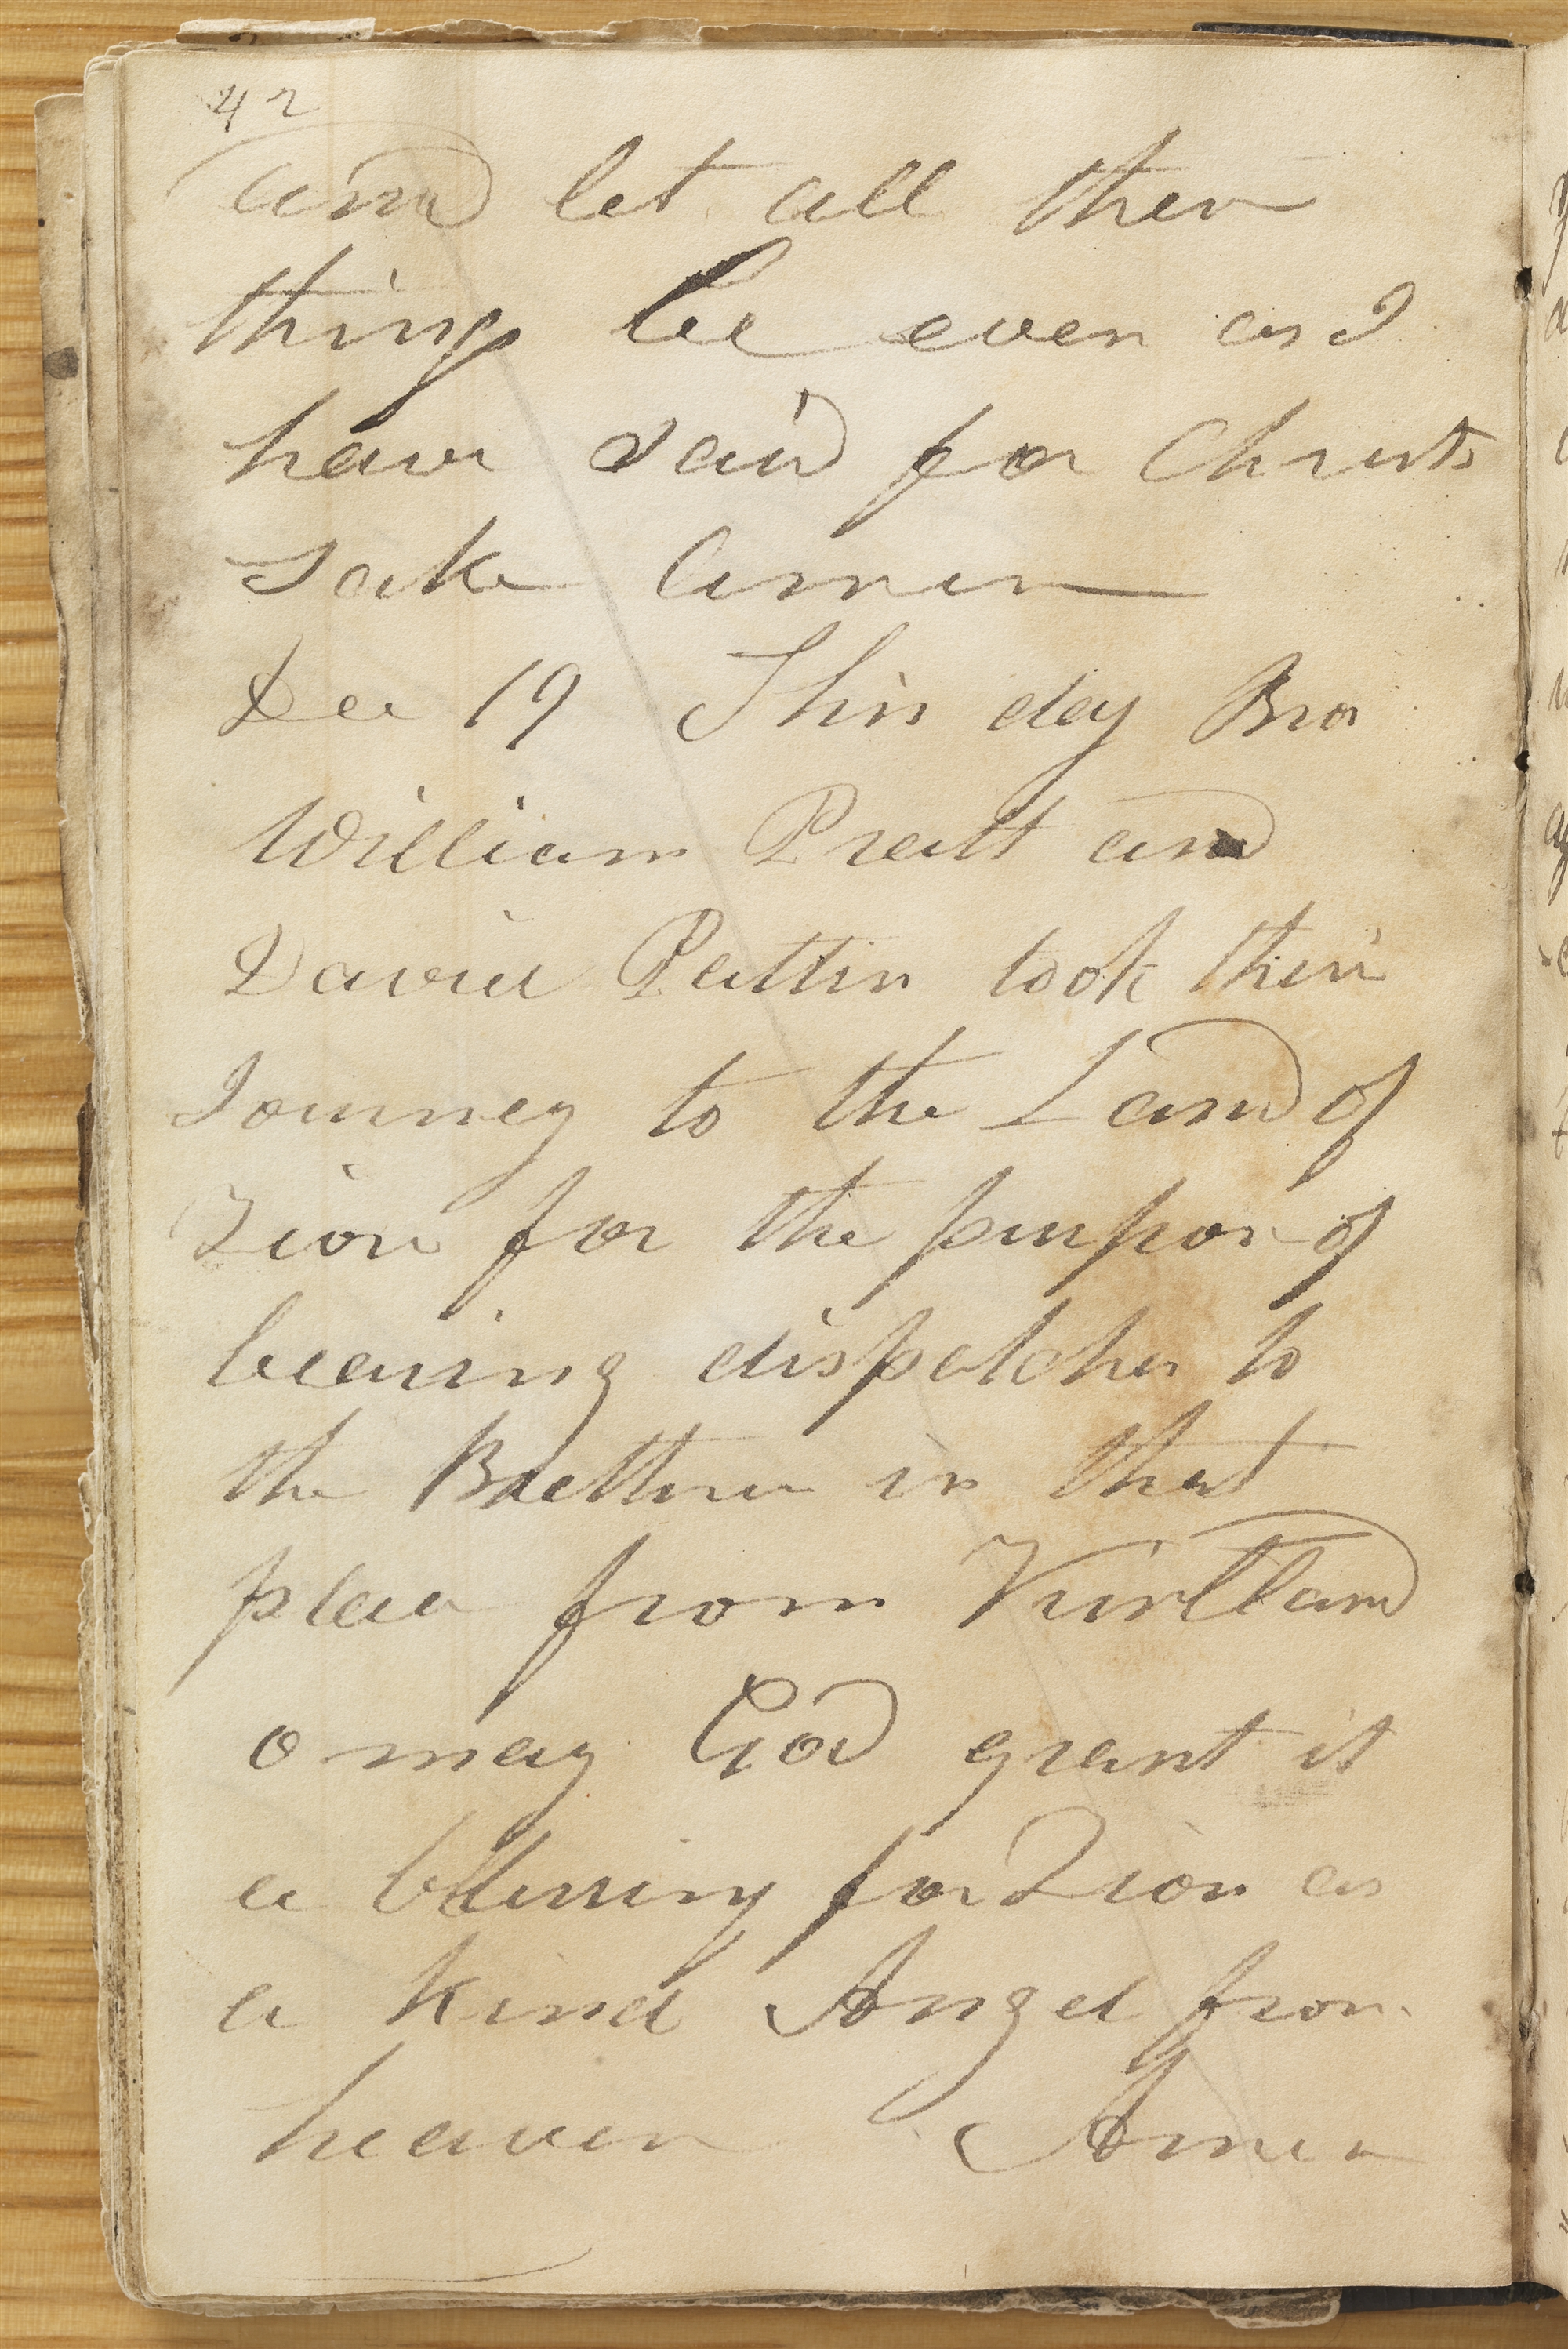 42
and let all these
things be even as I
have said for Christs
sake Amen
Dec 19 This day Bro
William Pratt and
David Pattin took their
Journey to the Land of
Zion for the purpose of
bearing dispatches to
the Brethren in that
place from Kirtland
o may God grant it
a blessing for Zion as
a kind Angel from
heaven Amen